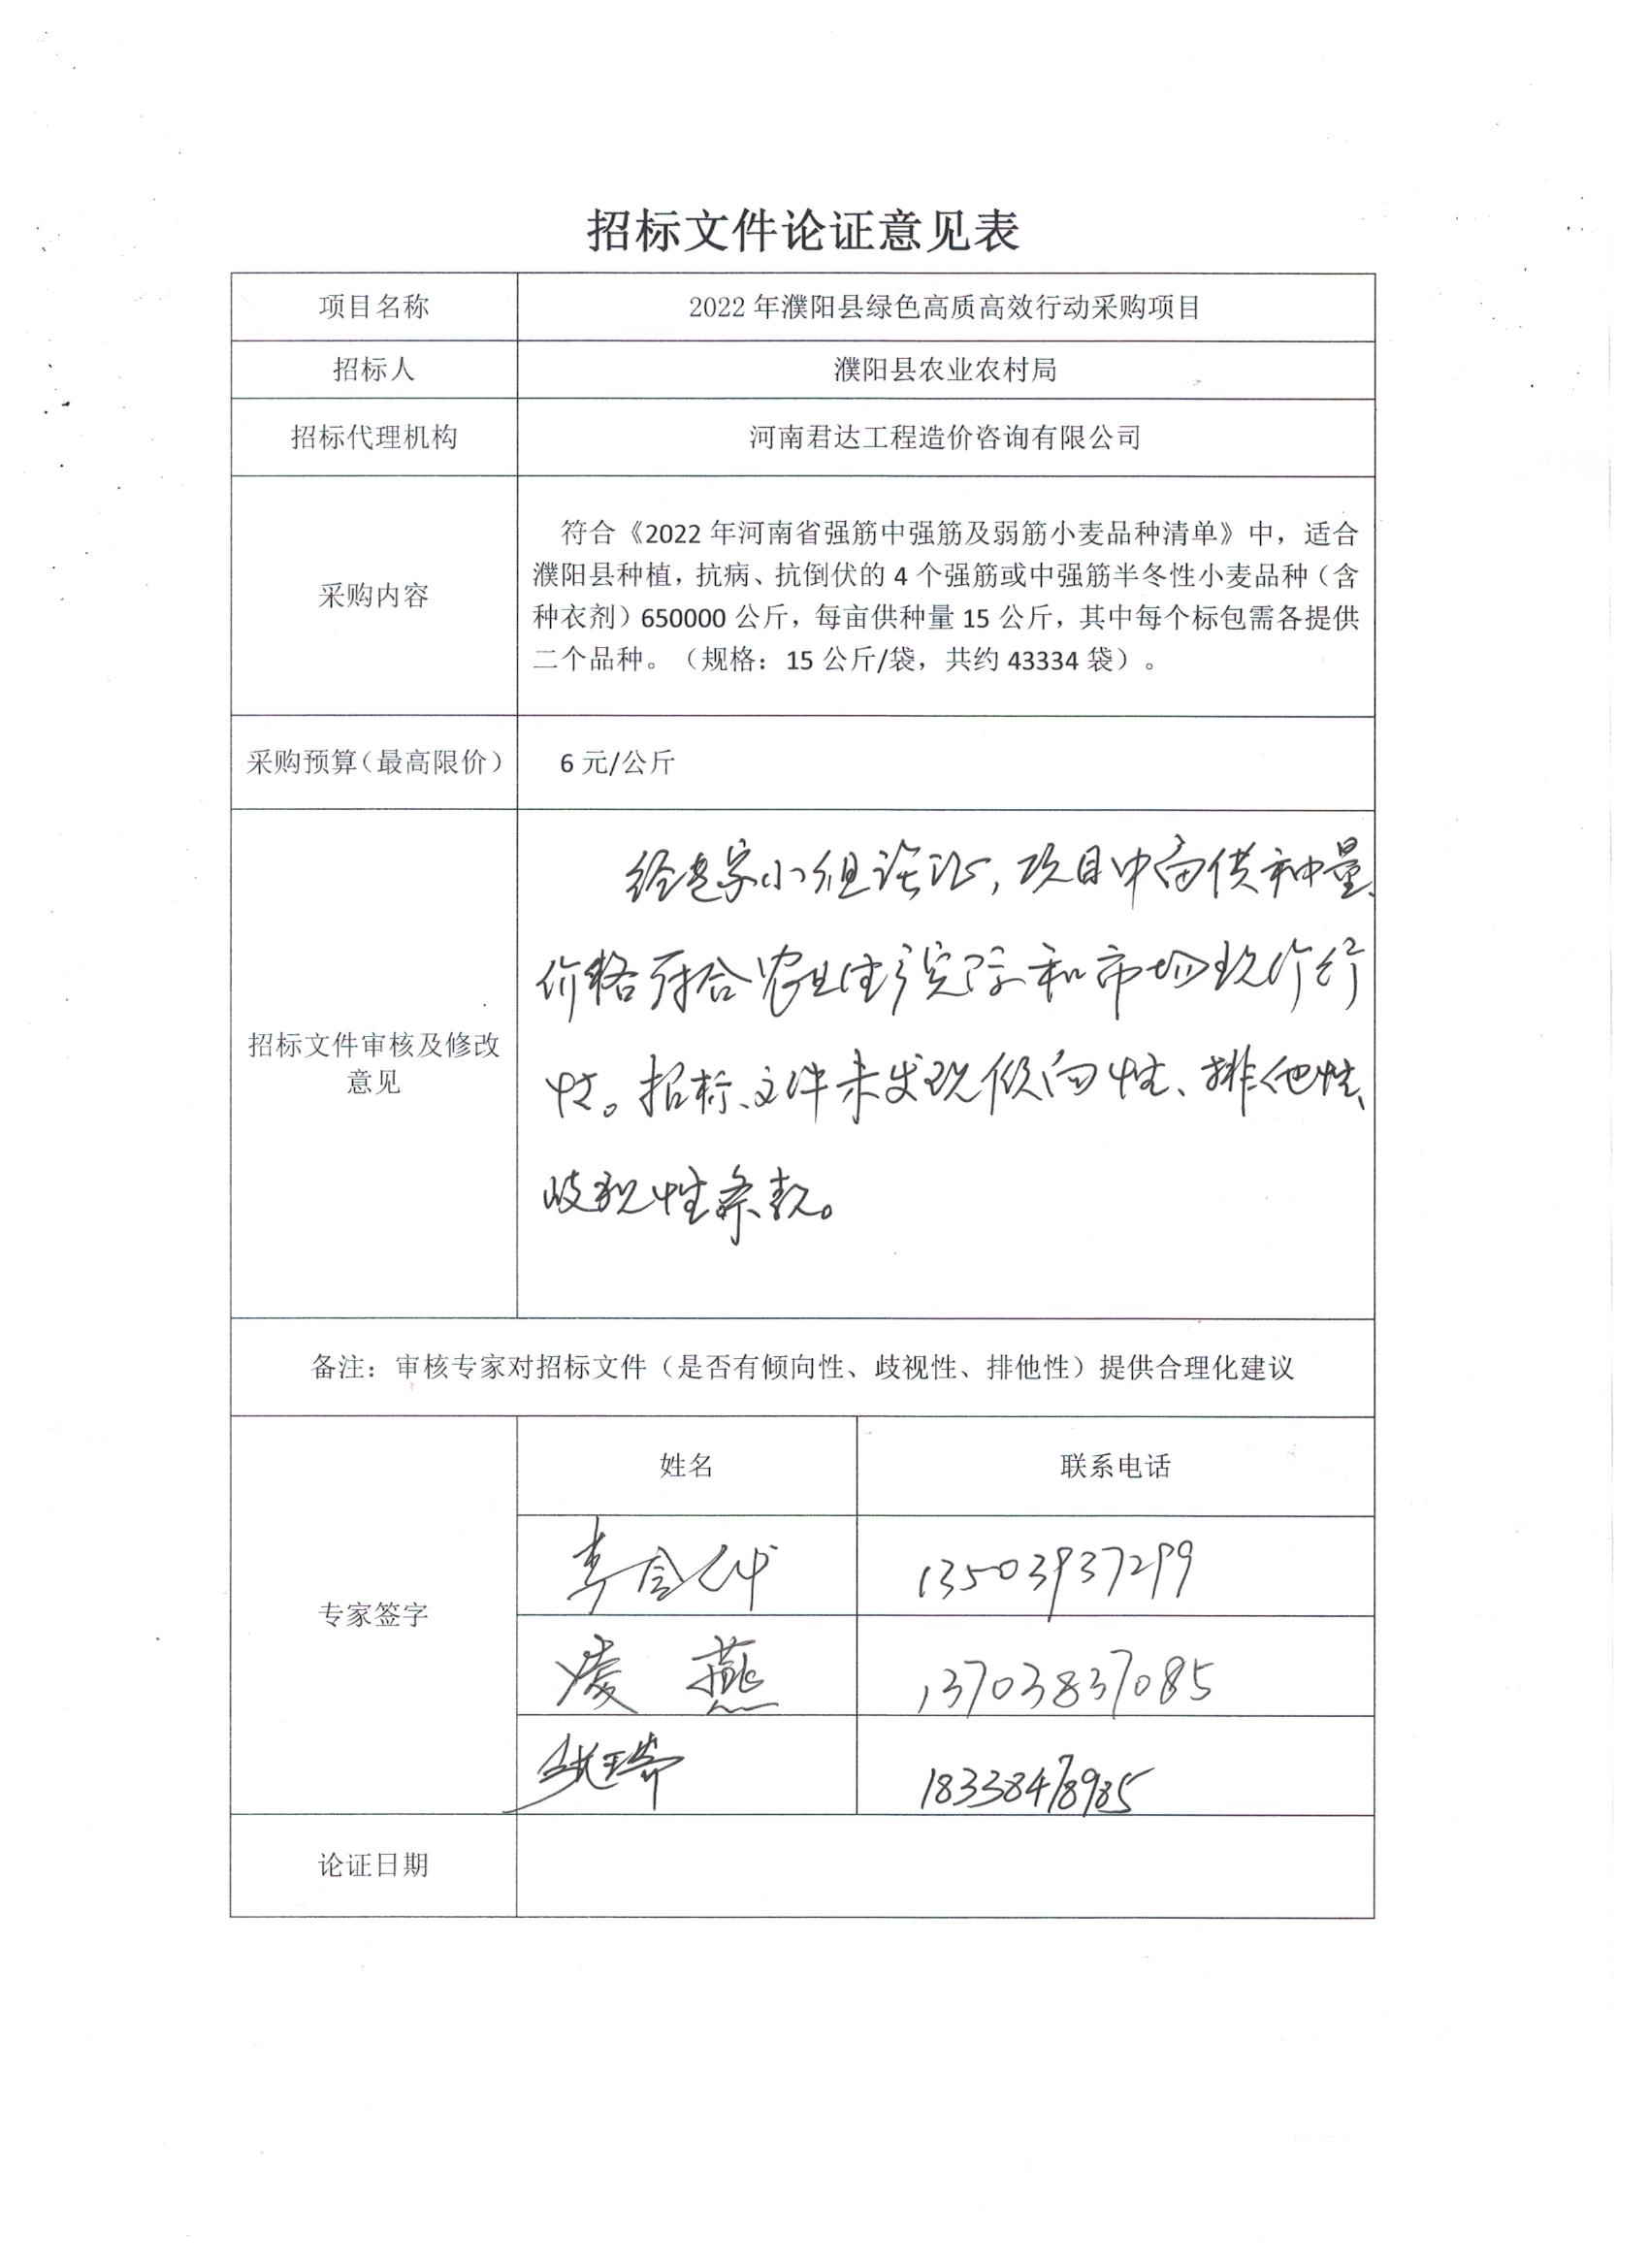 招标文件论证意见表
项目名称
2022年濮阳县绿色高质高效行动采购项目
招标人
濮阳县农业农村局
招标代理机构
河南君达工程造价咨询有限公司
采购内容
符合《2022年河南省强筋中强筋及弱筋小麦品种清单》中，适合
濮阳县种植，抗病、抗倒伏的4个强筋或中强筋半冬性小麦品种（含
种衣剂）650000公斤，每亩供种量15公斤，其中每个标包需各提供
二个品种。（规格：15公斤/袋，共约43334袋）。
采购预算（最高限价）
6元/公斤
招标文件审核及修改
意见
经专家小组论证，项目中亩供种量、
价格符合农业生产实际和市场现价行
情。招标文件未发现倾向性、排他性、
歧视性条款。
备注：审核专家对招标文件（是否有倾向性、歧视性、排他性）提供合理化建议
专家签字
姓名
联系电话
李
13503937299
凌燕
13703837085
18338478985
论证日期